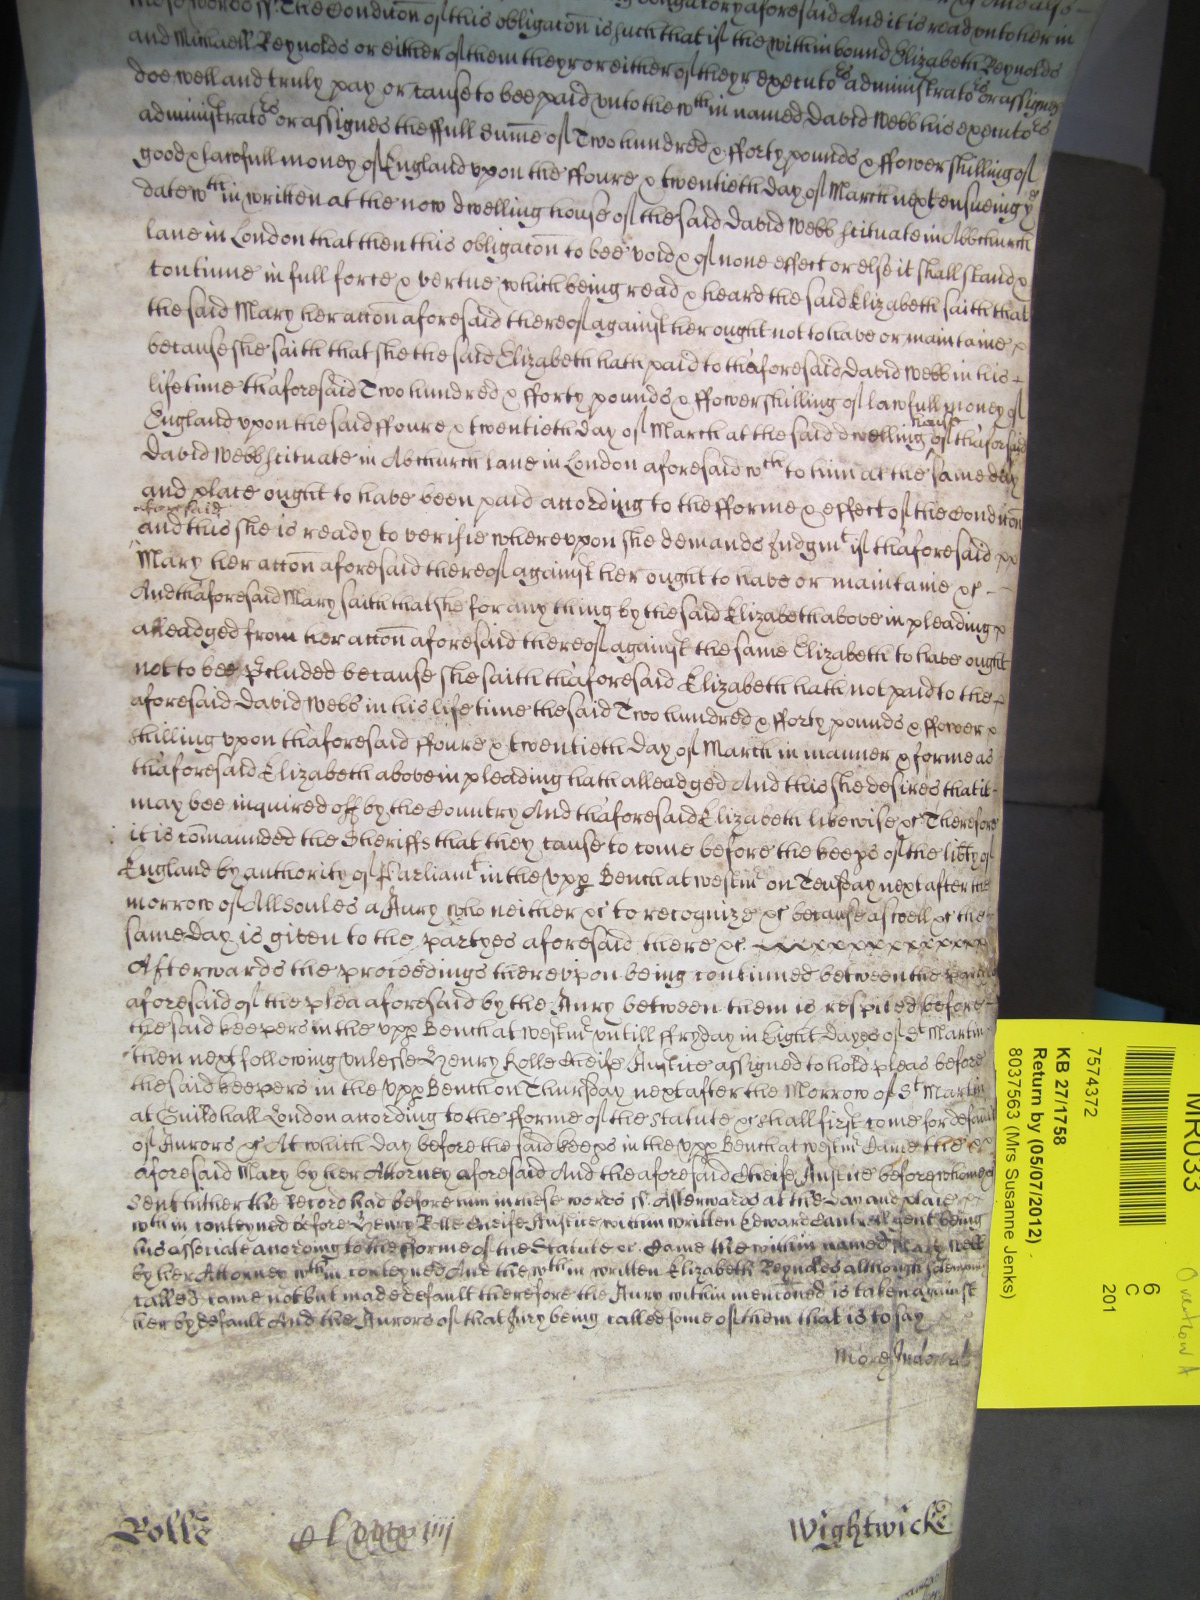 these words ss. The Condicon of this obligacon is such that if the within bound Elizabeth Reynolds
and Michaell Reynolds or either of them theyr or either of theyr executors administrators or assignes
doe well and truly pay or cause to bee paid unto the wth in named David Webb his executors
administrators or assignes the ffull Summe of Two hundred & fforty pounds & ffower shilling of
good & lawfull money of England vpon the ffoure & twentieth day of March next ensueing ye
date wth in written at the now dwelling house of the said David Webb scituate in Abbchurch
lane in London that then this obligacon to bee void & of none effect or else it shall stand &
continue in full force & vertue which being read & heard the said Elizabeth saith that
the said Mary her accon aforesaid thereof against her ought not to have or maintaine
because she saith that she the said Elizabeth hath paid to thaforesaid David Webb in his
lifetime thaforesaid Two hundred & fforty pounds & ffower shilling of lawfull money of
England vpon the said ffoure & twentieth day of March at the said dwelling house of thaforesaid
David Webb scituate in Abchurch lane in London aforesaid wch to him at the same day
and place ought to have been paid according to the fforme & effect of the Condicon
aforesaid
and this she is ready to verifie whereupon she demands Judgmt if thaforesaid
Mary her accon aforesaid thereof against her ought to have or maintaine &c
And thaforesaid Mary saith that she for any thing by the said Elizabeth above in pleading
alleadged from her accon aforesaid thereof against the same Elizabeth to have ought
not to bee Precluded because she saith thaforesaid Elizabeth hath not paid to the
aforesaid David Webb in his life time the said Two hundred & fforty pounds & ffower
shilling vpon thaforesaid ffoure & twentieth day of March in manner & forme as
thaforesaid Elizabeth above in pleading hath alleadged And this she desires that it
may bee inquired off by the Country And thaforesaid Elizabeth likewise &c Therefore
it is comaunded the Sheriffs that they cause to come before the keeps of the libty of
England by authority of Parliamt in the Vpp Bench at Westmr on Teusday next after the
morrow of All soules a Jury who neither &c to recognize &c because aswell &c the
same day is given to the partyes aforesaid there &c
Afterwards the proceedings therevpon being continued between the
aforesaid of the plea aforesaid by the Jury between them is respited before
the said keepers in the Vpp Bench at Westmr untill ffryday in Eight dayes of St Martin
then next following vnlesse Henry Rolle Cheife Justice assigned to hold pleas before
the said keepers in the Vpp Bench on Thursday next after the Morrow of St Martin
at Guildhall London according to the fforme of the Statute &c shall first come for default
of Jurors &c At which day before the said keeps in the Vpp Bench at westmr Came the
aforesaid Mary by her Attorney aforesaid And the aforesaid Cheife Justice before whome
Sent hither the Record had before him in these words ss. Afterwards at the day and place
wth in conteyned before Henry Rolle Cheife Justice within written Edward gent being
his associate according to the fforme of the Statute &c Came the within named Mary Webb
by her Attorney wth in conteyned And the wth in written Elizabeth Reynolds although solemnly
called came not but made default therefore the Jury within menconed is taken against
her by default And the Jurors of that Jury being called some of them that is to say
More
Rolle
Wightwicke
MR033
7574372
KB 27/1758
Return by (05/07/2012)
8037563 (Mrs Susanne Jenks)
6
C
201
Overflow A